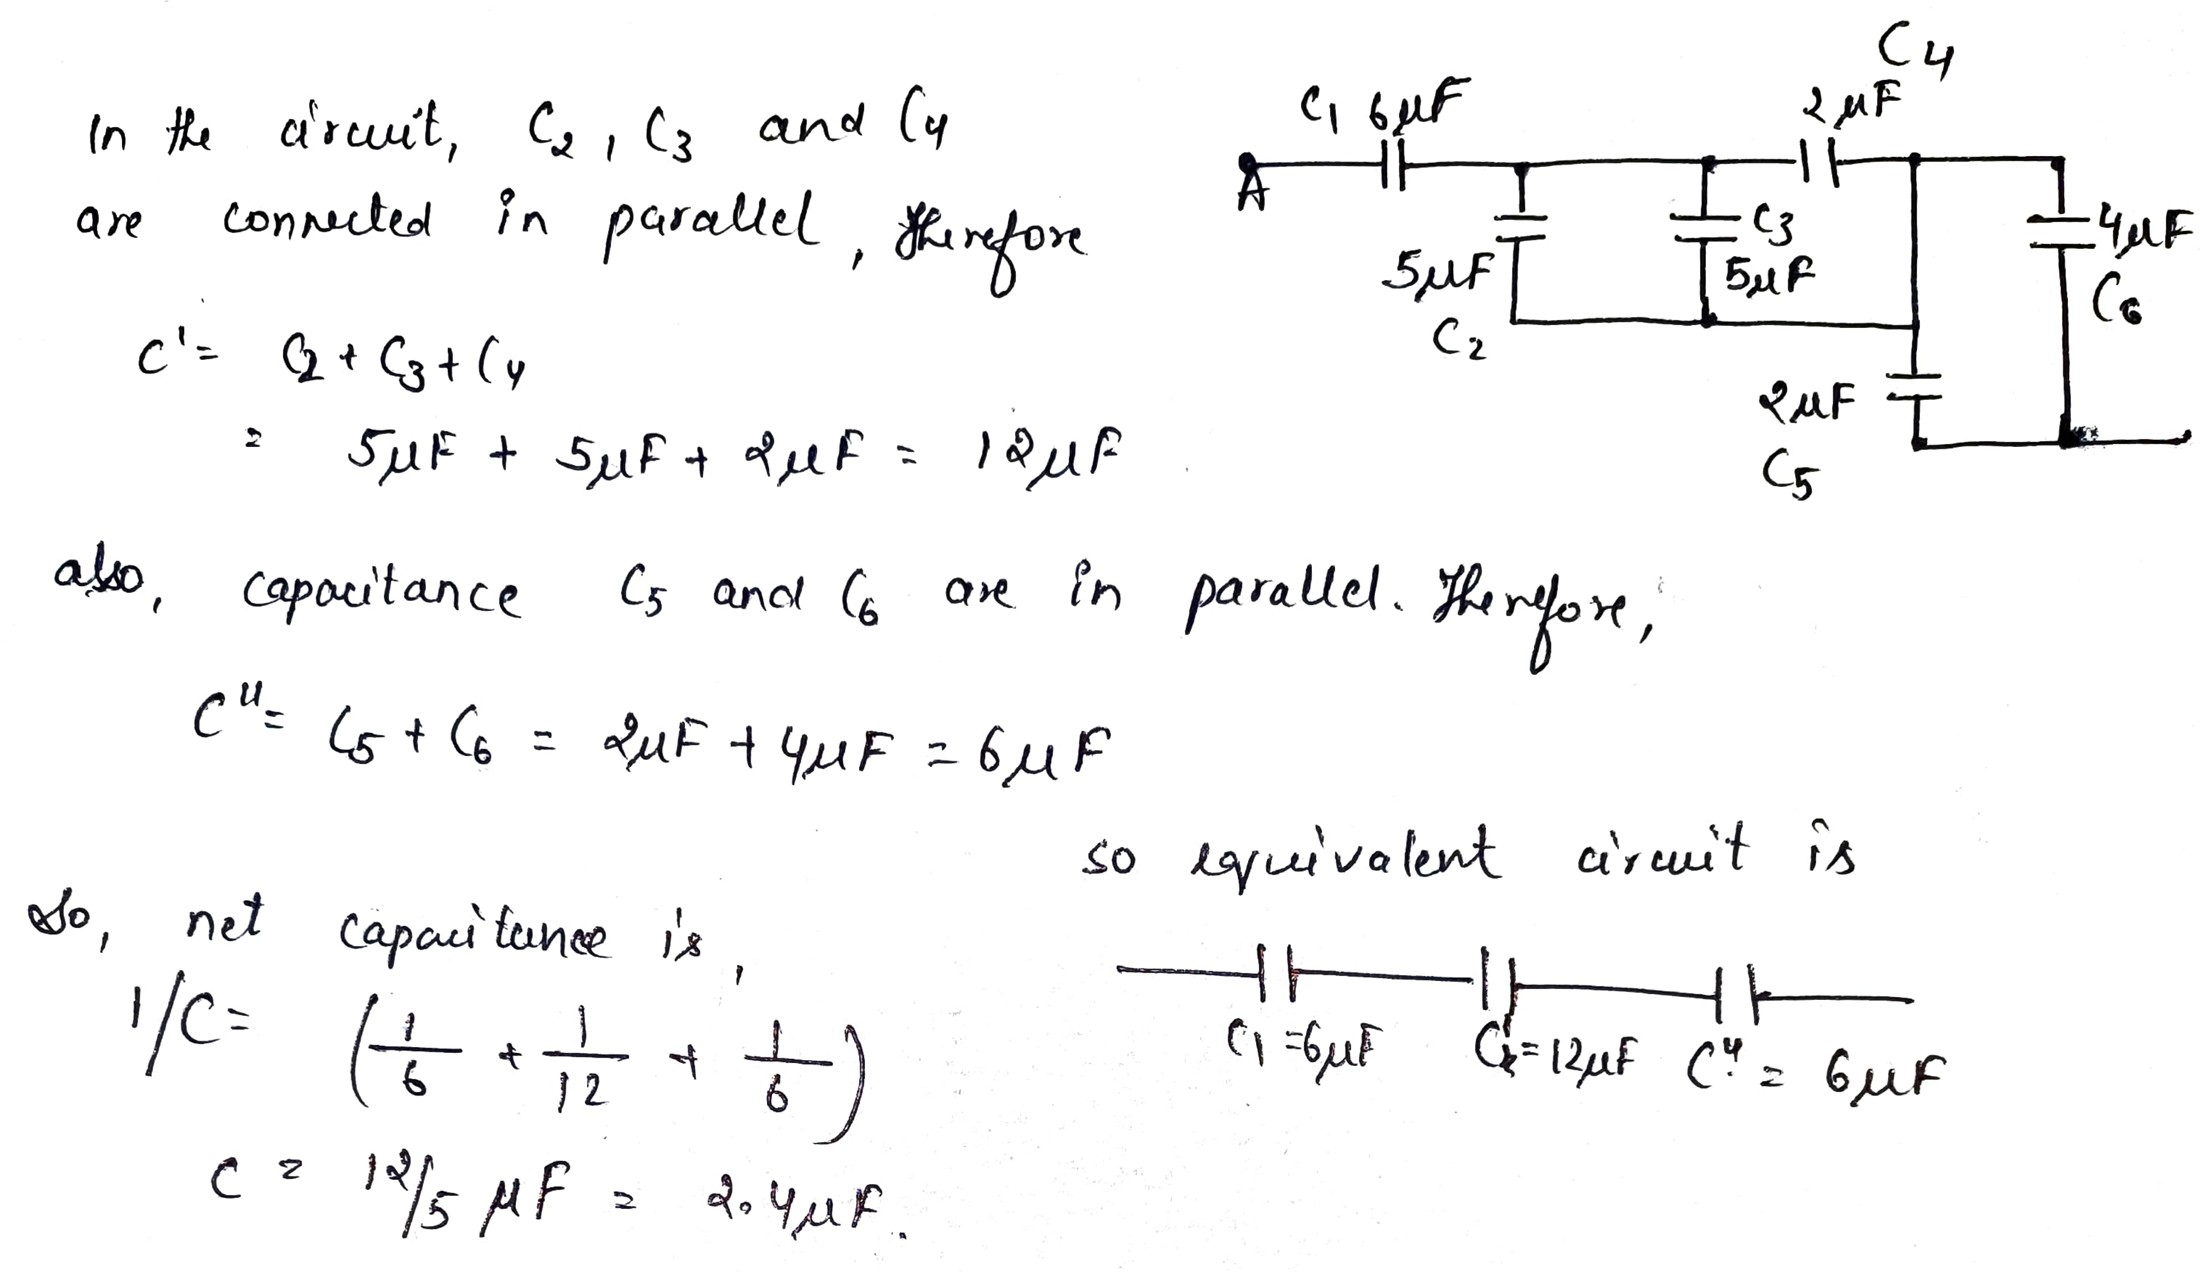 In the circuit, C2, C3 and C4
are connected in parallel, therefore
C' = C2 + C3 + C4
= 5μF + 5μF + 2μF = 12μF
C4
C1 6μF
2μF
A
C3
5μF
5μF
C2
4μF
C6
2μF
C5
also, capacitance C5 and C6 are in parallel. Therefore,
C" = C5 + C6 = 2μF + 4μF = 6μF
so equivalent circuit is
C1 = 6μF C' = 12μF C" = 6μF
So, net capacitance is,
1/C = (1/6 + 1/12 + 1/6)
C = 12/5 μF = 2.4μF.